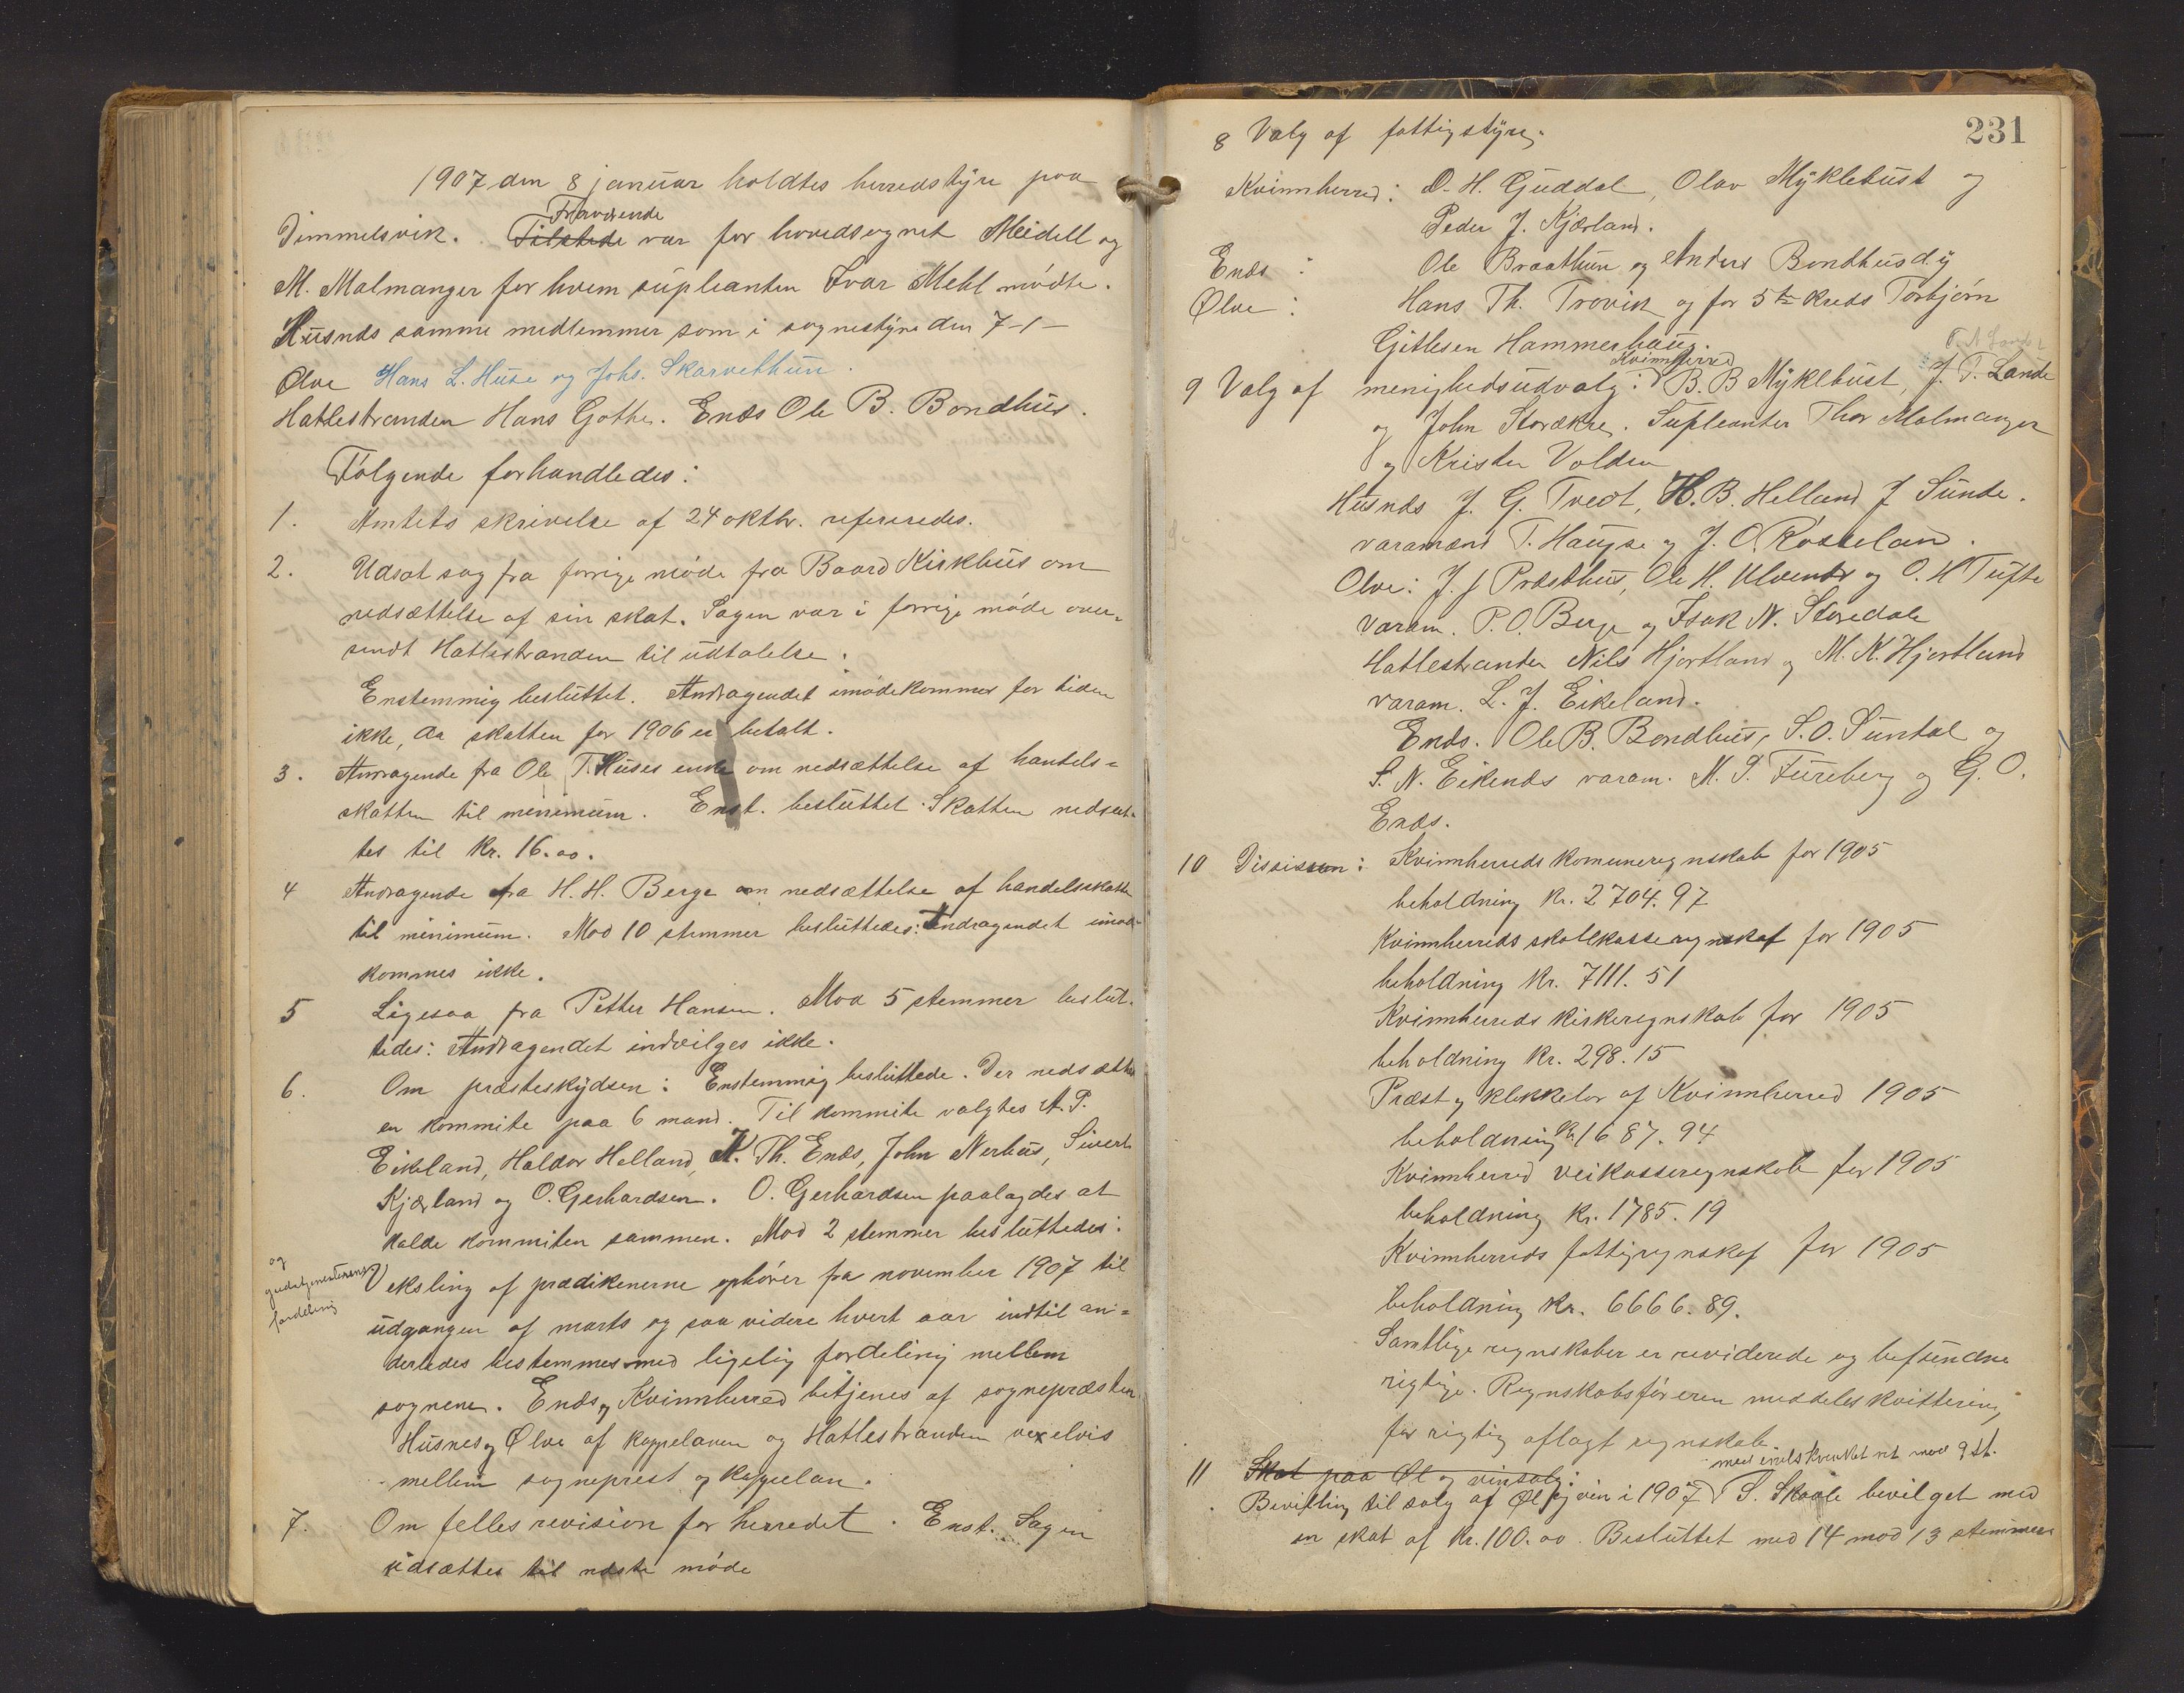 1907 den 8 januar holdtes herredstyre paa
Fraværende
Dimmelsvik. Tilstede var for hovedsognet Meidell og
M. Malmanger for hvem supleanten Ivar Mehl mødte.
Husnæs samme medlemmer som i sognestyre den 7-1-
Ølve Hans L. Huse og Johs. Skarvethun.
Hatlestranden Hans Gothe. Enæs Ole B. Bondhus.
Følgende forhandledes:
1. Amtets skrivelse af 24 oktbr. refereredes.
2. Udsat sag fra forrige møde fra Baard Kirkhus om
nedsættelse af sin skat. Sagen var i forrige møde over-
sendt Hatlestranden til udtalelse.
Enstemmig besluttet. Andragendet imødekommes for tiden
ikke, da skatten for 1906 er betalt.
3. Andragende fra Ole T. Huses enke om nedsættelse af handels-
skatten til minimum. Enst. besluttet. Skatten nedsæt-
tes til Kr. 16.00.
4 Andragende fra H. H. Berge om nedsættelse af handelsskatten
til minimum. Mod 10 stemmer besluttedes: Andragendet imøde-
kommes ikke.
5 Ligesaa fra Petter Hansen. Mod 5 stemmer beslut-
tedes: Andragendet indvilges ikke.
6. Om presteskydsen: Enstemmig besluttede. Der nedsættes
en kommite paa 6 mand. Til kommite valgtes A. P.
Eikland, Haldor Helland, K. Th. Enæs, John Nerhus, Sivert
Kjærland og O. Gerhardsen. O. Gerhardsen paalagdes at
kalde kommiten sammen. Mod 2 stemmer besluttedes:
og
gudstjenesternes
fordeling
Veksling af prædikenerne ophører fra november 1907 til
udgangen af marts og saa videre hvert aar indtil an-
derledes bestemmes med ligelig fordeling mellem
sognene. Enæs og Kvinnherred betjenes af sognepræsten
Husnes og Ølve af kappelanen og Hatlestranden vexelvis
mellem sogneprest og kappelan.
7. Om felles revision for herredet. Enst. Sagen
udsættes til næste møde
231
8 Valg af fattigstyre.
Kvinnherred: D. H. Guddal, Olav Myklebust og
Peder J. Kjærland.
Enæs : Ole Braathun og Anders Bondhus d.y
Ølve : Hans Th. Trovik og for 5te kreds Torbjørn
Gitlesen Hammerhaug.
Kvinnherred
9 Valg af menighedsudvalg: B. B Myklebust, J. T. Lande
og John Storækre. Supleanter Thor Malmanger
og Krister Volden
Husnæs J. G. Tvedt, H. B. Helland J Sunde.
varamænd T. Haugse og J. O. Røsseland.
Ølve: J. J Præsthus, Ole H. Ulvenes og O. H Tufte
varam. P. O. Berge og Isak N. Støredale
Hatlestranden Nils Hjortland og M. K. Hjortland
varam. L. J. Eikeland.
Enæs. Ole B. Bondhus, S. O. Sundal og
S. N. Eikenæs varam. M. S. Fureberg og G. O.
Enæs.
10 Dissision: Kvinnherreds komuneregnskab for 1905
beholdning kr. 2704.97
Kvinnherreds skolekasseregnskab for 1905
beholdning kr. 7111.51
Kvinnherreds kirkeregnskab for 1905
beholdning kr. 298.15
Præst og klokkelov af Kvinnherred 1905
beholdning kr. 1687.94
Kvinnherred veikasseregnskab for 1905
beholdning kr. 1785.19
Kvinnherreds fattigregnskab for 1905
beholdning kr. 6666.89.
Samtlige regnskaber er reviderede og befundne
rigtige. Regnskabsføreren meddeles kvittering
for rigtig aflagt regnskab.
11 Skat paa Øl og vinsalg:
Bevilling til salg af Øl og vin i 1907 S. Skaale bevilget med
en skat af kr. 100.00. Besluttet med 14 mod 13 stemmer